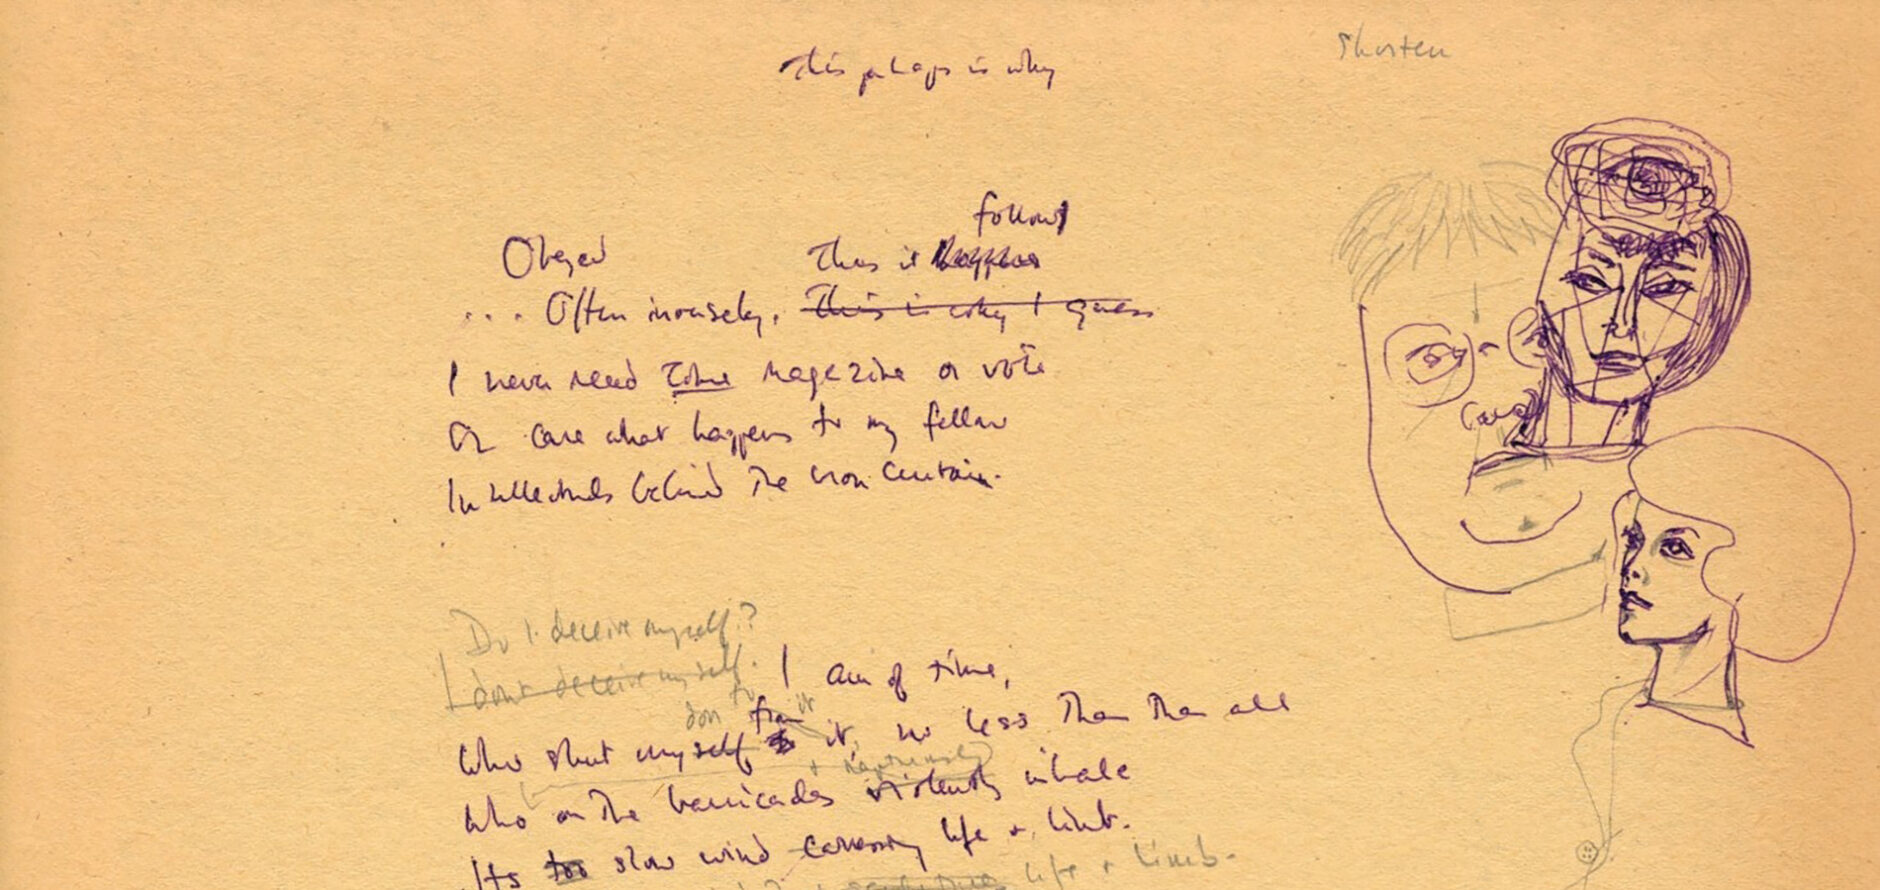 Shorten
This perhaps is why
follows
Obeyed Thus it happens
... Often inversely. This is why I guess
I never read Time Magazine or vote
Or care what happens to my fellow
Intellectuals behind the iron curtain.
Do I deceive myself?
I don't deceive myself. I am of time,
from it
Who shut myself to it, no less than the all
Who on the barricades violently inhale
Its too slow wind caressing life + limb.
life + limb.